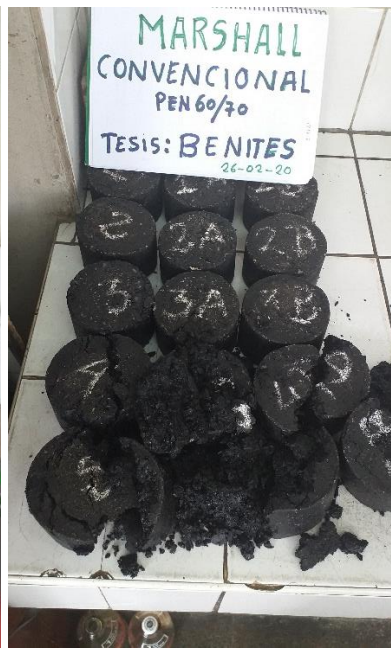 MARSHALL
CONVENCIONAL
PEN 60/70
TESIS: BENITES
26-02-20
2 2A 2B
3 3A 3B